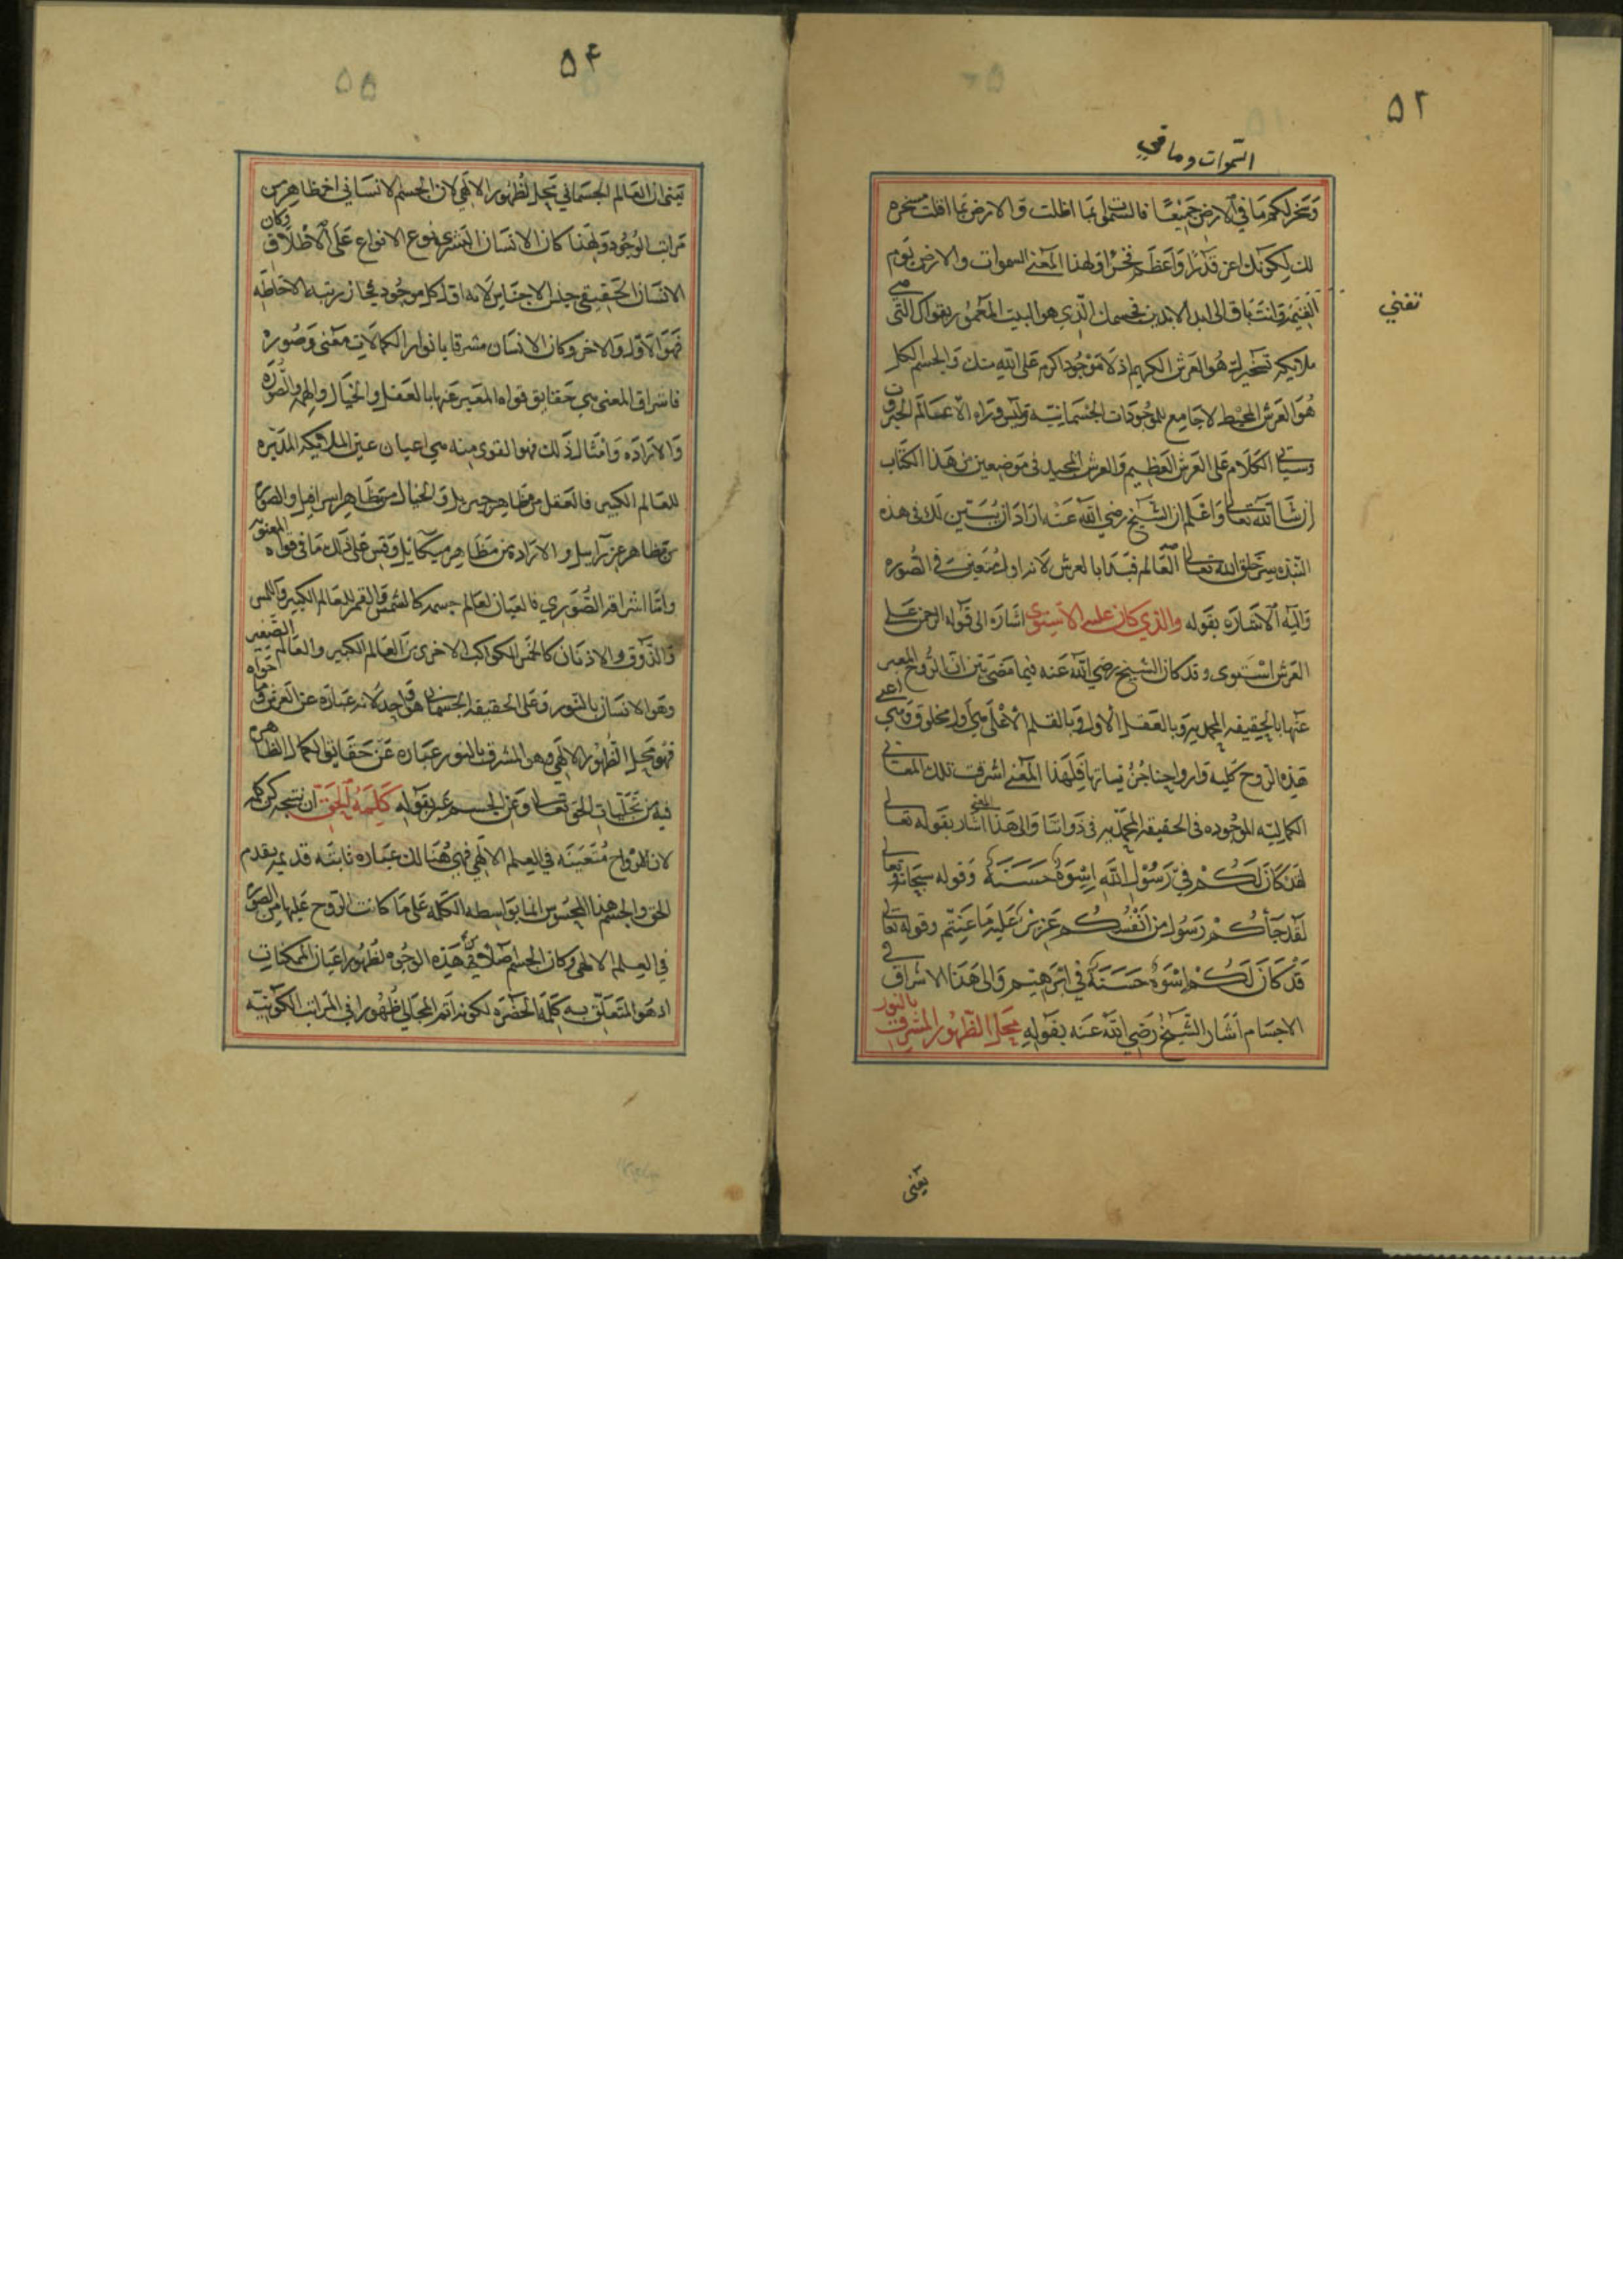 ٥٢
السموات وما في
وسخر لكم ما في الارض جميعا فالسموات بما اظلت والارض بما اقلت مسخره
لك لكونك اعز قدرا واعظم فخرا ولهذا المعنى السموات والارض يوم
تفني
القيمة وانت باق الى ابد الابدين فجسمك الذي هو البيت المعمور بقواك التي هي
ملايكه تسخيرك هو العرش الكريم اذ لا موجود اكرم على الله منك والجسم الكل
هو العرش المحيط لاجامع للموجودات الجسمانية وليس وراه الا عالم الجبروت
وسياتي الكلام على العرش العظيم والعرش المجيد في موضعين من هذا الكتاب
ان شا الله تعالى واعلم ان الشيخ رضي الله عنه اراد ان يستبين لك في هذه
النبذه سر خلق الله تعالى العالم فبدا بالعرش لانه اول متعين في الصوره
واليه الاشاره بقوله والذي كان عليه الاستوى اشاره الى قوله الرحمن على
العرش استوى وقد كان الشيخ رضي الله عنه فيما مضى بين ان الروح المعبر
عنها بالحقيقه المحمديه وبالعقل الاول وبالقلم الاعلى هي اول مخلوق وهي اعني
هذه الروح كليه وارواحنا جزئياتها فلهذا المعنى اشرقت تلك المعاني
الكماليه الموجوده في الحقيقه المحمديه في ذواتنا والى هذا المعنى اشار بقوله تعالى
لقد كان لكم في رسول الله اسوة حسنة وقوله سبحانه وتعالى
لقد جاكم رسول من انفسكم عزيز عليه ما عنتم وقوله تعالى
قد كان لكم اسوة حسنة في ابرهيم والى هذا الاشراق في
الاجسام اشار الشيخ رضي الله عنه بقوله مجلى الظهور المشرق بالنور
يعني
٥٤
يعني ان العالم الجسماني مجلى لظهور الالهي لان الجسم الانساني اخر مظاهر من
مراتب الوجود ولهذا كان الانسان البشري نوع الانواع على الاطلاق وكان
الانسان الحقيقي جنس الاجناس لانه اول كل موجود مجاز رتبة الاحاطه
فهو الاول والاخر وكان الانسان مشرقا بانوار الكمالات معنى وصورة
فاشراق المعنى هي حقايق قواه المعبر عنها بالعقل والخيال والهمه والصوره
والاراده وامثال ذلك فهو القوى منه هي اعيان عين الملايكه المدبره
للعالم الكبير فالعقل من مظاهر جبريل والخيال من مظاهر اسرافيل والصوره
من مظاهر عزرآيل والاراده من مظاهر ميكائيل وقس على ذلك ما في قواه المعنويه
واما اشراقه الصوري فالعينان لعالم جسمه كالشمس والقمر للعالم الكبير واللمس
والذوق والاذنان كالخمس الكواكب الاخرى من العالم الكبير والعالم الصغير
وهو الانسان بالنور وعلى الحقيقه الجسمانيه هو واحد لانه عبارة عن العرش وما حواه
فهو مجلى الظهور الالهي وهو المشرق بالنور عباره عن حقايق الكمال الظاهره
فيه من تجليات الحق تعالى وعن الجسم عبر بقوله كلمة الحق ان نتيجه كن كلمه
لان الارواح متعينه في العلم الالهي فهي هنالك عباره ثابته قديمه بقدم
الحق والجسم هذا المحسوس انما بواسطه الكلمه على ما كانت الروح عليها من الصوره
في العلم الالهي وكان الجسم هذه الوجوه لظهور اعيان الممكنات
اذ هو المتعلق به كلمة الحضره لكونه اتم المجالي ظهورا في المراتب الكونيه